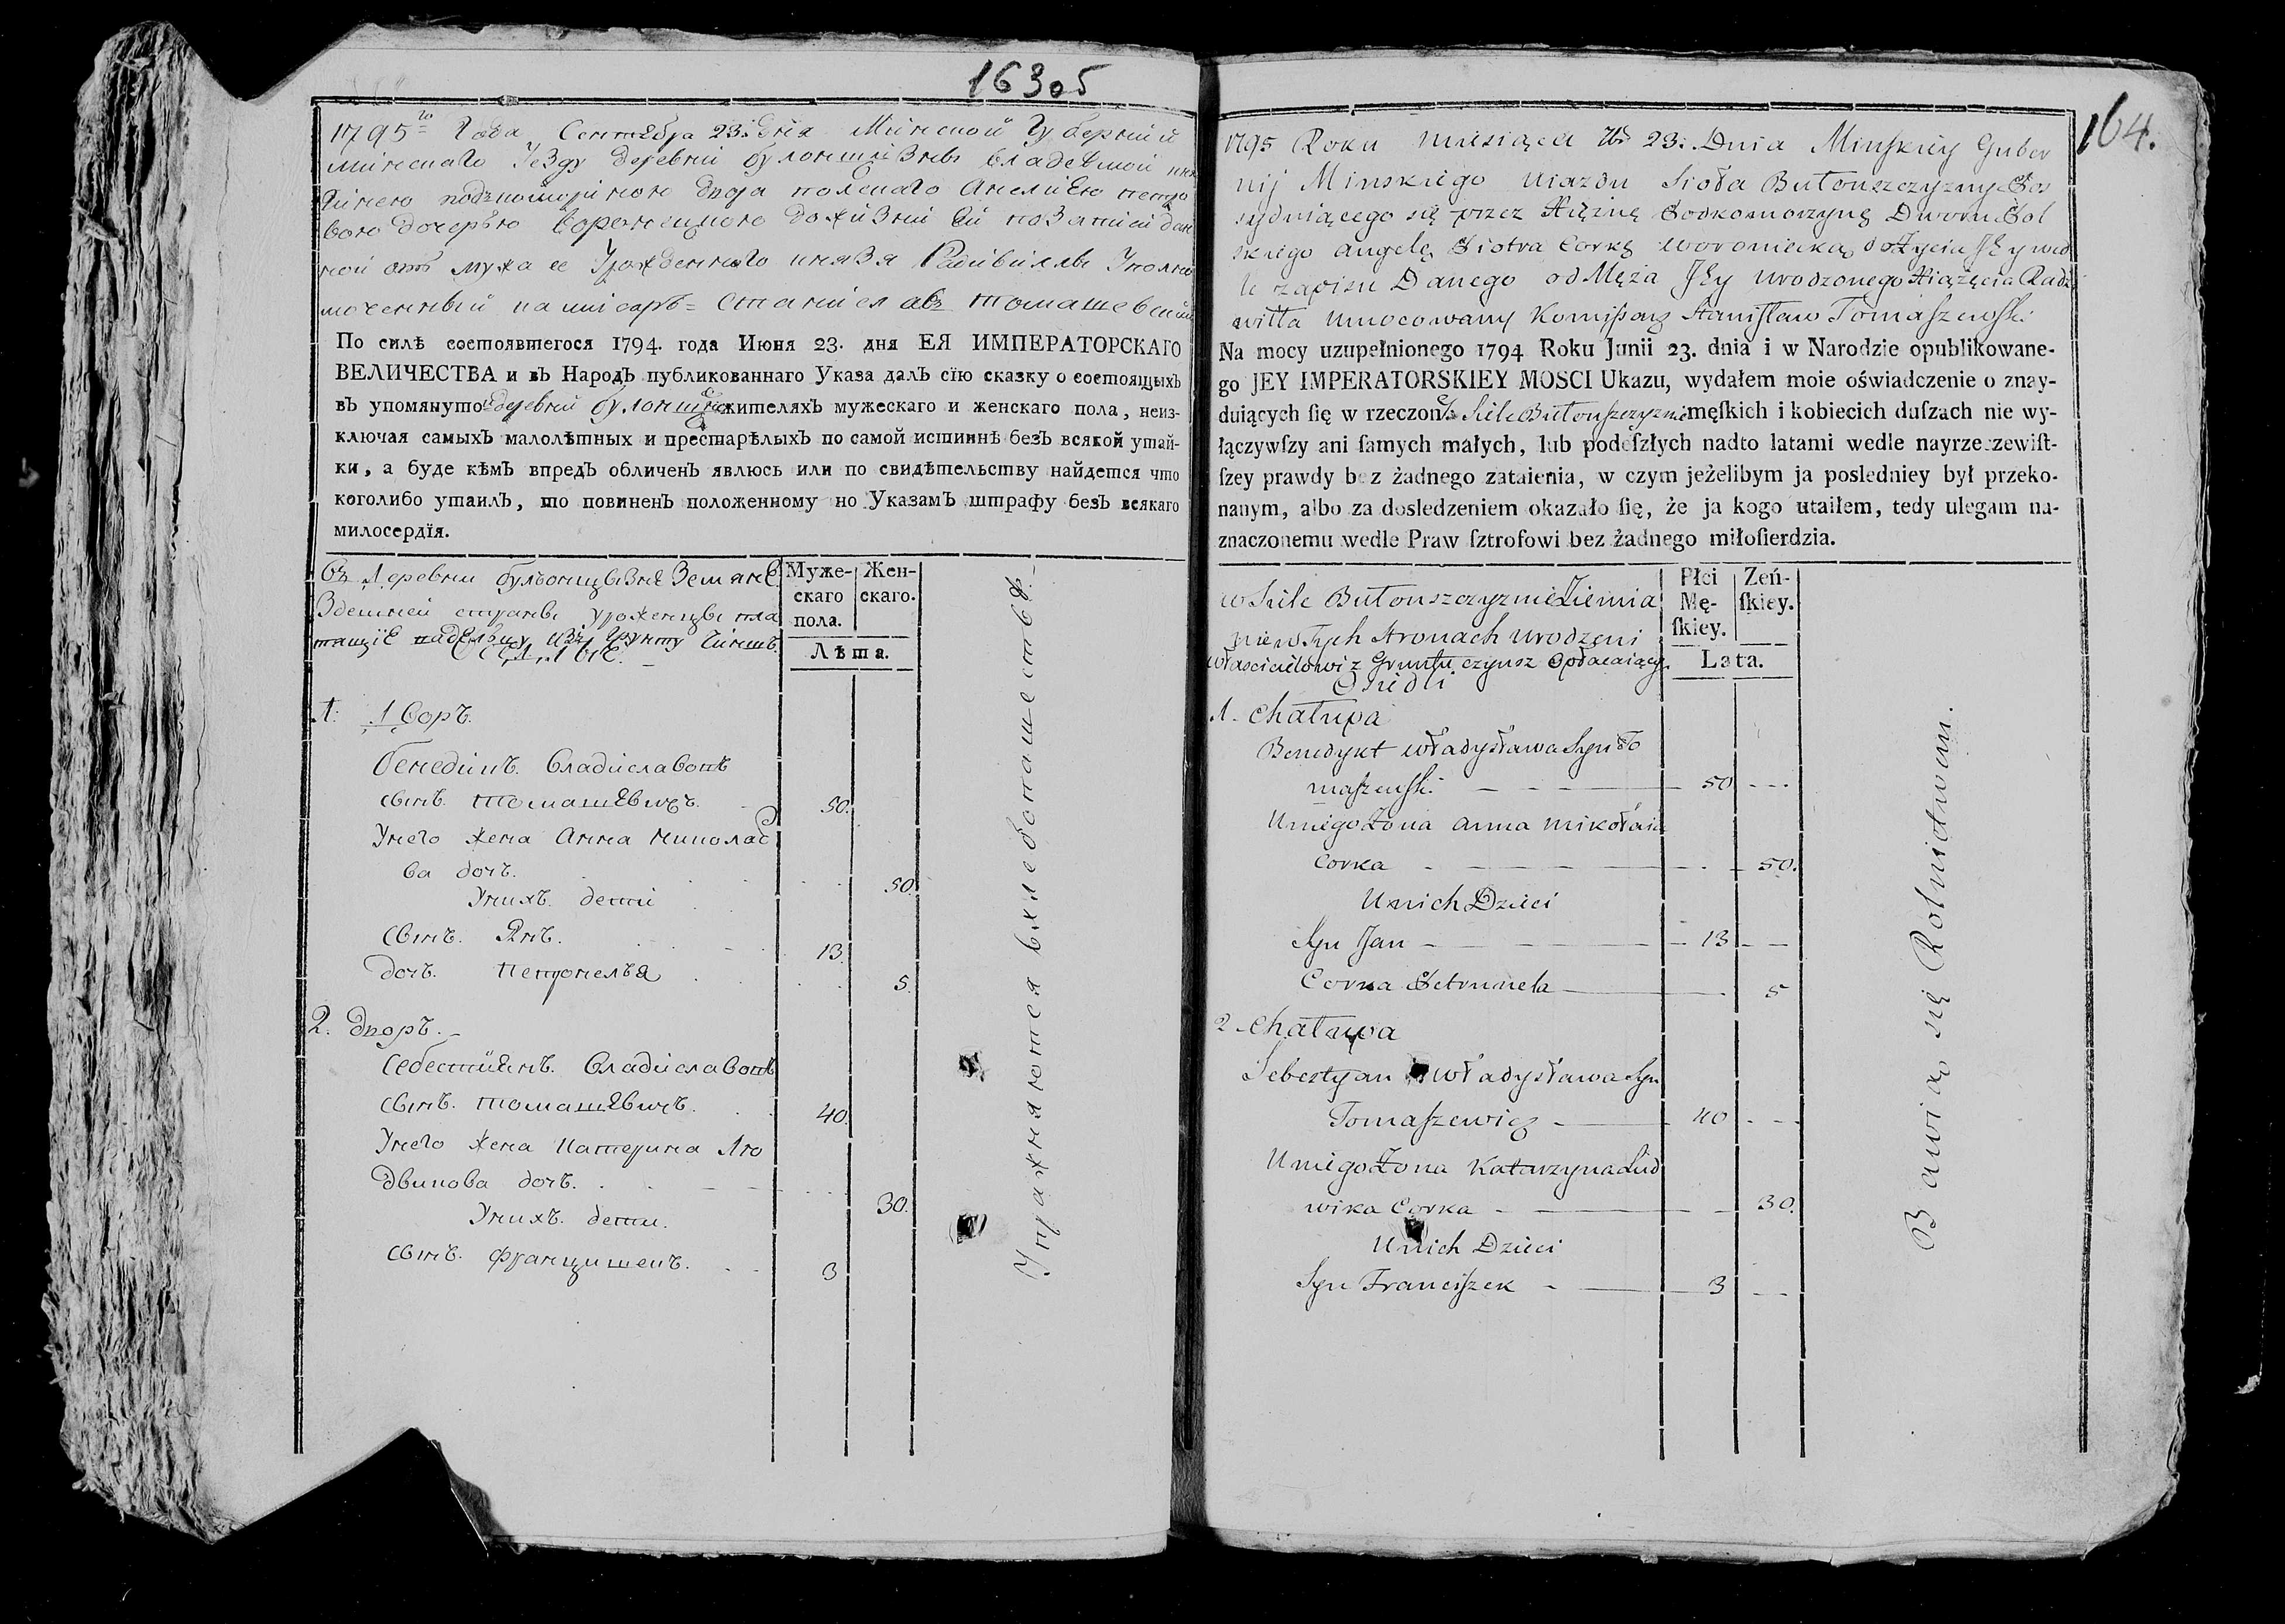 16305
1795го Года Сентября 23: дня Минской Губернии
Минскаго Уезду деревни Булонщизны владемой
подкомориною двора полскаго Анелиею петро
вою дочерью Воронецкою
ной отъ мужа ее Урожденнаго князя Радивиллы Уполно
моченный Станислав Томашевский
По силѣ состоявшегося 1794. года Июня 23. дня ЕЯ ИМПЕРАТОРСКАГО
ВЕЛИЧЕСТВА и въ Народъ публикованнаго Указа далъ сїю сказку о состоящыхъ
въ упомянутой деревни жителяхъ мужескаго и женскаго пола, неиз-
ключая самыхъ малолѣтныхъ и престарѣлыхъ по самой истиннѣ безъ всякой утай-
ки, а буде кѣмъ впредъ обличенъ явлюсь или по свидѣтельству найдется что
коголибо утаилъ, то повиненъ положенному по Указамъ штрафу безъ всякаго
милосердїя.
Въ Деревни Земяне
Здешней страны уроженцы пла
тащие из грунту чиншъ
Муже-
скаго
пола.
Жен-
скаго.
Лѣта.
1: Дворъ.
Бенедикъ. Владиславовъ
сынъ. Томашевичъ. 50.
Унего жена Анна Миколае
ва дочъ. 50.
Унихъ. дети
сынъ. Янъ. 13.
дочъ. Петронелья 5.
2. дворъ.
Себестиянъ. Владиславовъ
сынъ. Томашевичъ. 40.
Унего жена Катерина Лю
двикова дочъ. 30.
Унихъ. дети.
сынъ. Францишекъ. 3
Упражняются вхлебопашестве.
164.
1795 Roku miesiąca 7br 23: Dnia Minskiey Guber
nij Minskiego Uiazdu Sioła Butonszczyzny Pos
sydniącego się przez Xiężnę Podkomorzynę Dworu Pol
skiego Angelę Piotra Corkę Woroniecką do Życia Jey wed
le zapisu Danego od Męża Jey Urodzonego Xiążęcia Radzi
wiłła Umocowany Komisarz Stanisław Tomaszewski
Na mocy uzupełnionego 1794 Roku Junii 23. dnia i w Narodzie opublikowane-
go JEY IMPERATORSKIEY MOSCI Ukazu, wydałem moie oświadczenie o znay-
duiących ſię w rzeczonym Siele Butonszczyznie męſkich i kobiecich duſzach nie wy-
łączywſzy ani ſamych małych, lub podeſzłych nadto latami wedle nayrzeczewiſt-
ſzey prawdy bez żadnego zataienia, w czym jeżelibym ja posledniey był przeko-
nanym, albo za dosledzeniem okazało ſię, że ja kogo utaiłem, tedy ulegam na-
znaczonemu wedle Praw ſztrofowi bez żadnego miłoſierdzia.
w Siele Butonszczyznie Ziemia
nie w Tych Stronach Urodzeni
Włascicielowi z Gruntu czynsz Opłacaiący
Osiedli
Płci
Mę-
ſkiey.
Zeń-
ſkiey.
Lata.
1. Chałupa
Benedykt Władysława Syn To
maszewski 50
U niego Żona Anna Mikołaia
Corka 50.
U nich Dzieci
Syn Jan 13
Corka Petrunela 5
2 Chałupa
Sebestyan Władysława Syn
Tomaszewicz 40
U niego Żona Katarzyna Lud
wika Corka 30.
U nich Dzieci
Syn Franciszek 3
Bawią się Rolnictwem.